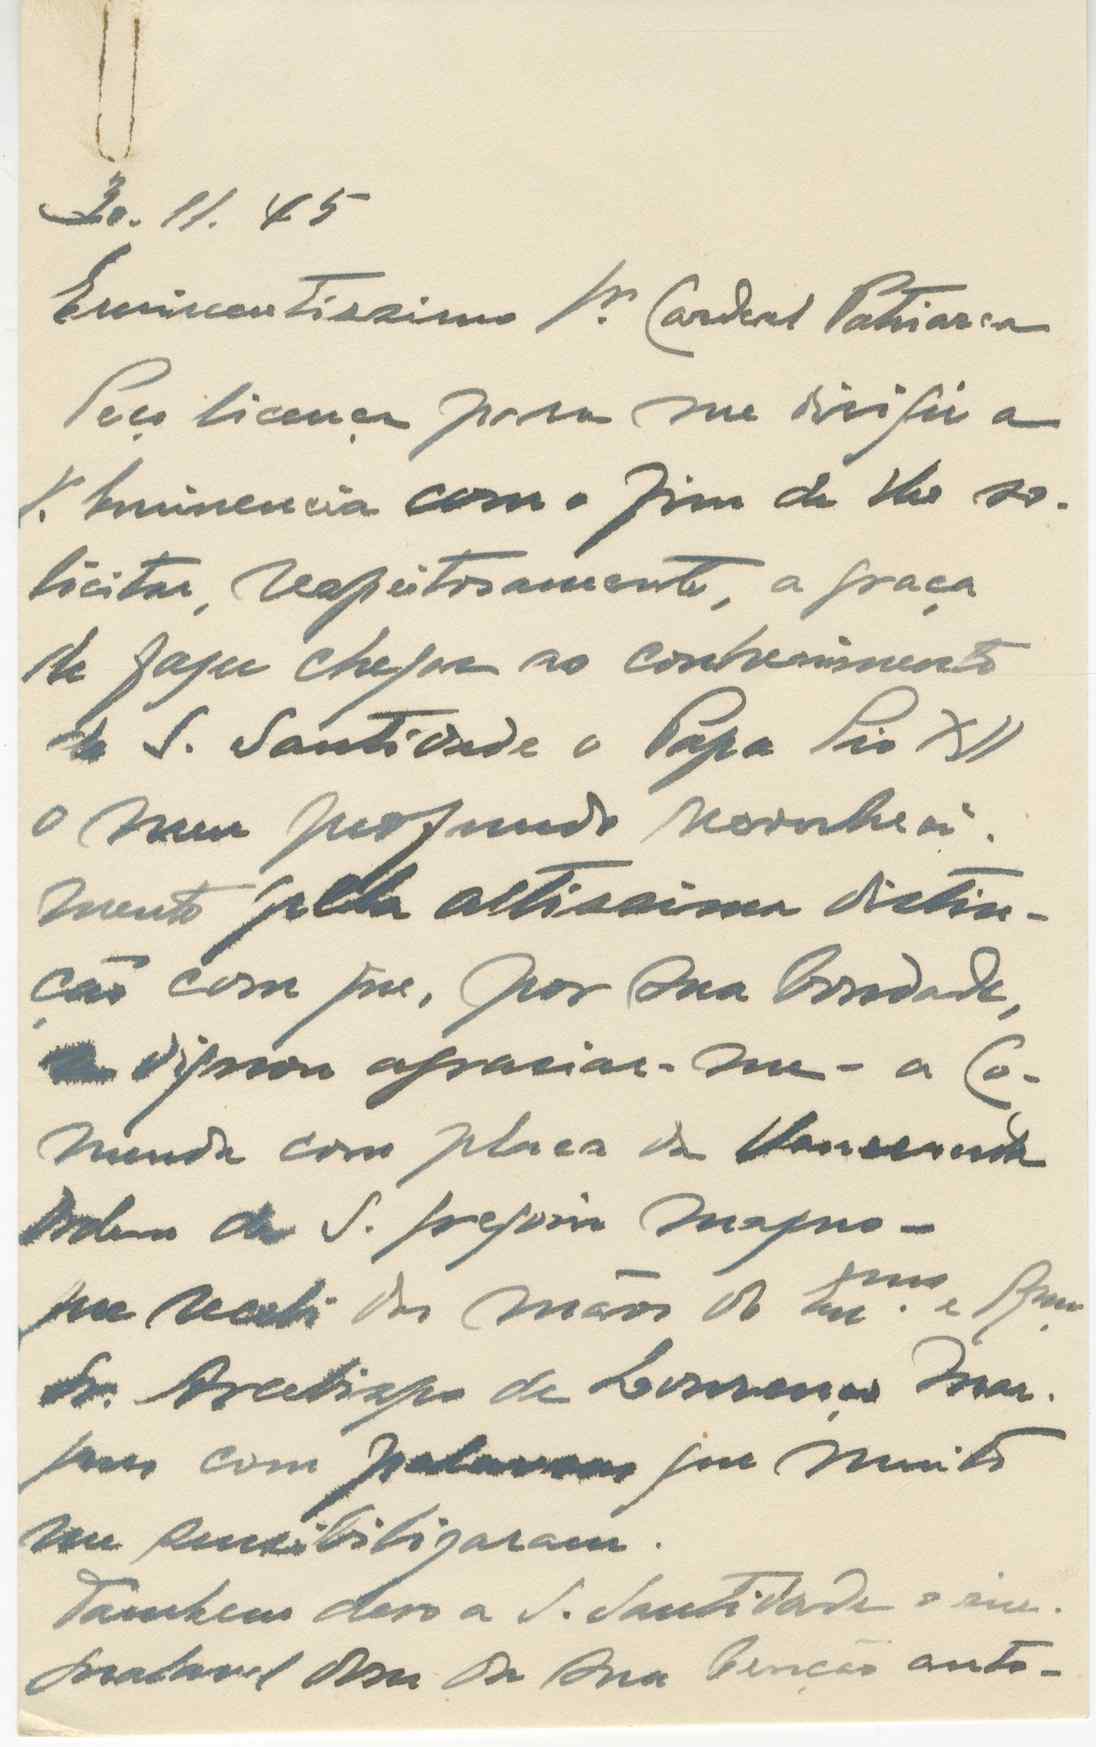 30. 11. 45
Eminentissimo Sr. Cardeal Patriarca
Peço licença para me dirigir a
V. Eminencia com o fim de lhe so-
licitar, respeitosamente, a graça
de fazer chegar ao conhecimento
de S. Santidade o Papa Pio XII
o meu profundo reconheci-
mento pela altissima distin-
ção com que, por sua bondade,
se dignou agraciar-me - a Co-
menda com placa da
Ordem de S. Gregorio Magno -
que recebi das mãos do Em.mo e Rev.
Sr. Arcebispo de Lourenço Mar-
ques com palavras que muito
me sensibilizaram.
Tambem devo a S. Santidade o ines-
timavel dom da sua benção auto-